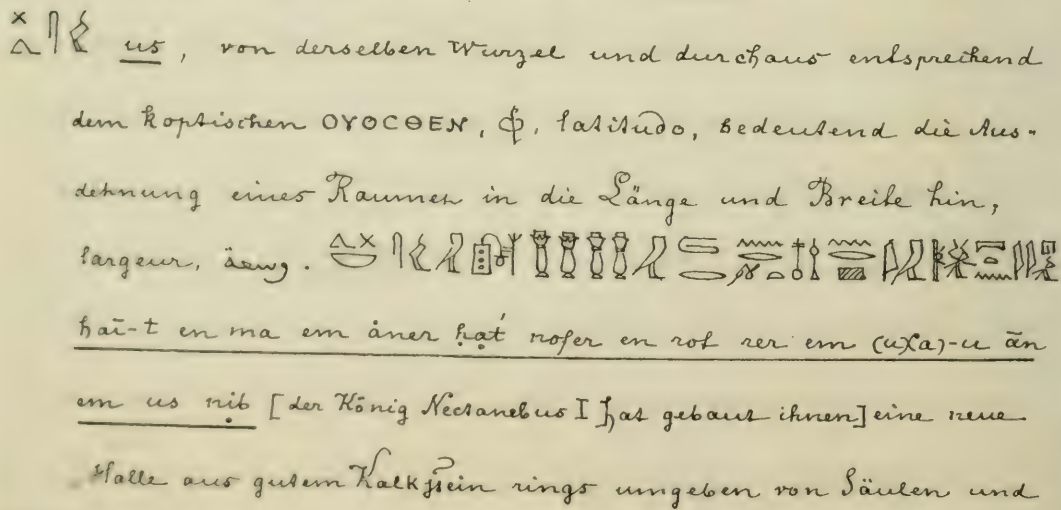 us, von derselben Wurzel und durchaus entsprechend
dem koptischen ΟΥΟϹΘΕΝ, latitudo, bedeutend die Aus-
dehnung eines Raumes in die Länge und Breite hin,
largeur,
ḥai-t en ma em åner ḥat́ nofer en rot rer em (uχa)-u ān
em us nib [der König Nectanebus I hat gebaut ihnen] eine neue
Halle aus gutem Kalkstein rings umgeben von Säulen und